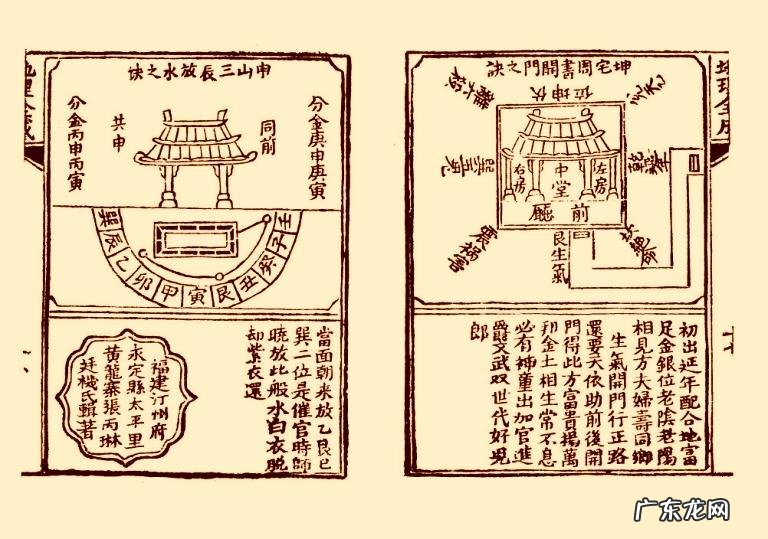 坤宅周書開門之訣
伏坤位
左房
中堂
右房
前廳
艮生氣
初出延年配合地富
足金銀位老陰老陽
相見方夫婦壽同鄉
生氣開門行正路
還要天依助前後開
門得此方富貴揚萬
邦金土相生常不息
必有神童出加官進
爵文武双世代好兒
郎
申山三辰放水之訣
分金庚申庚寅
同前
共申
分金丙申丙寅
巽辰乙卯甲寅艮丑癸子壬
當面朝來放乙艮巳
巽二位是催官時師
曉放此般水白衣脫
却紫衣還
福建汀州府
永定縣太平里
黄龍寨張丙琳
廷機氏輯著
广东龙网